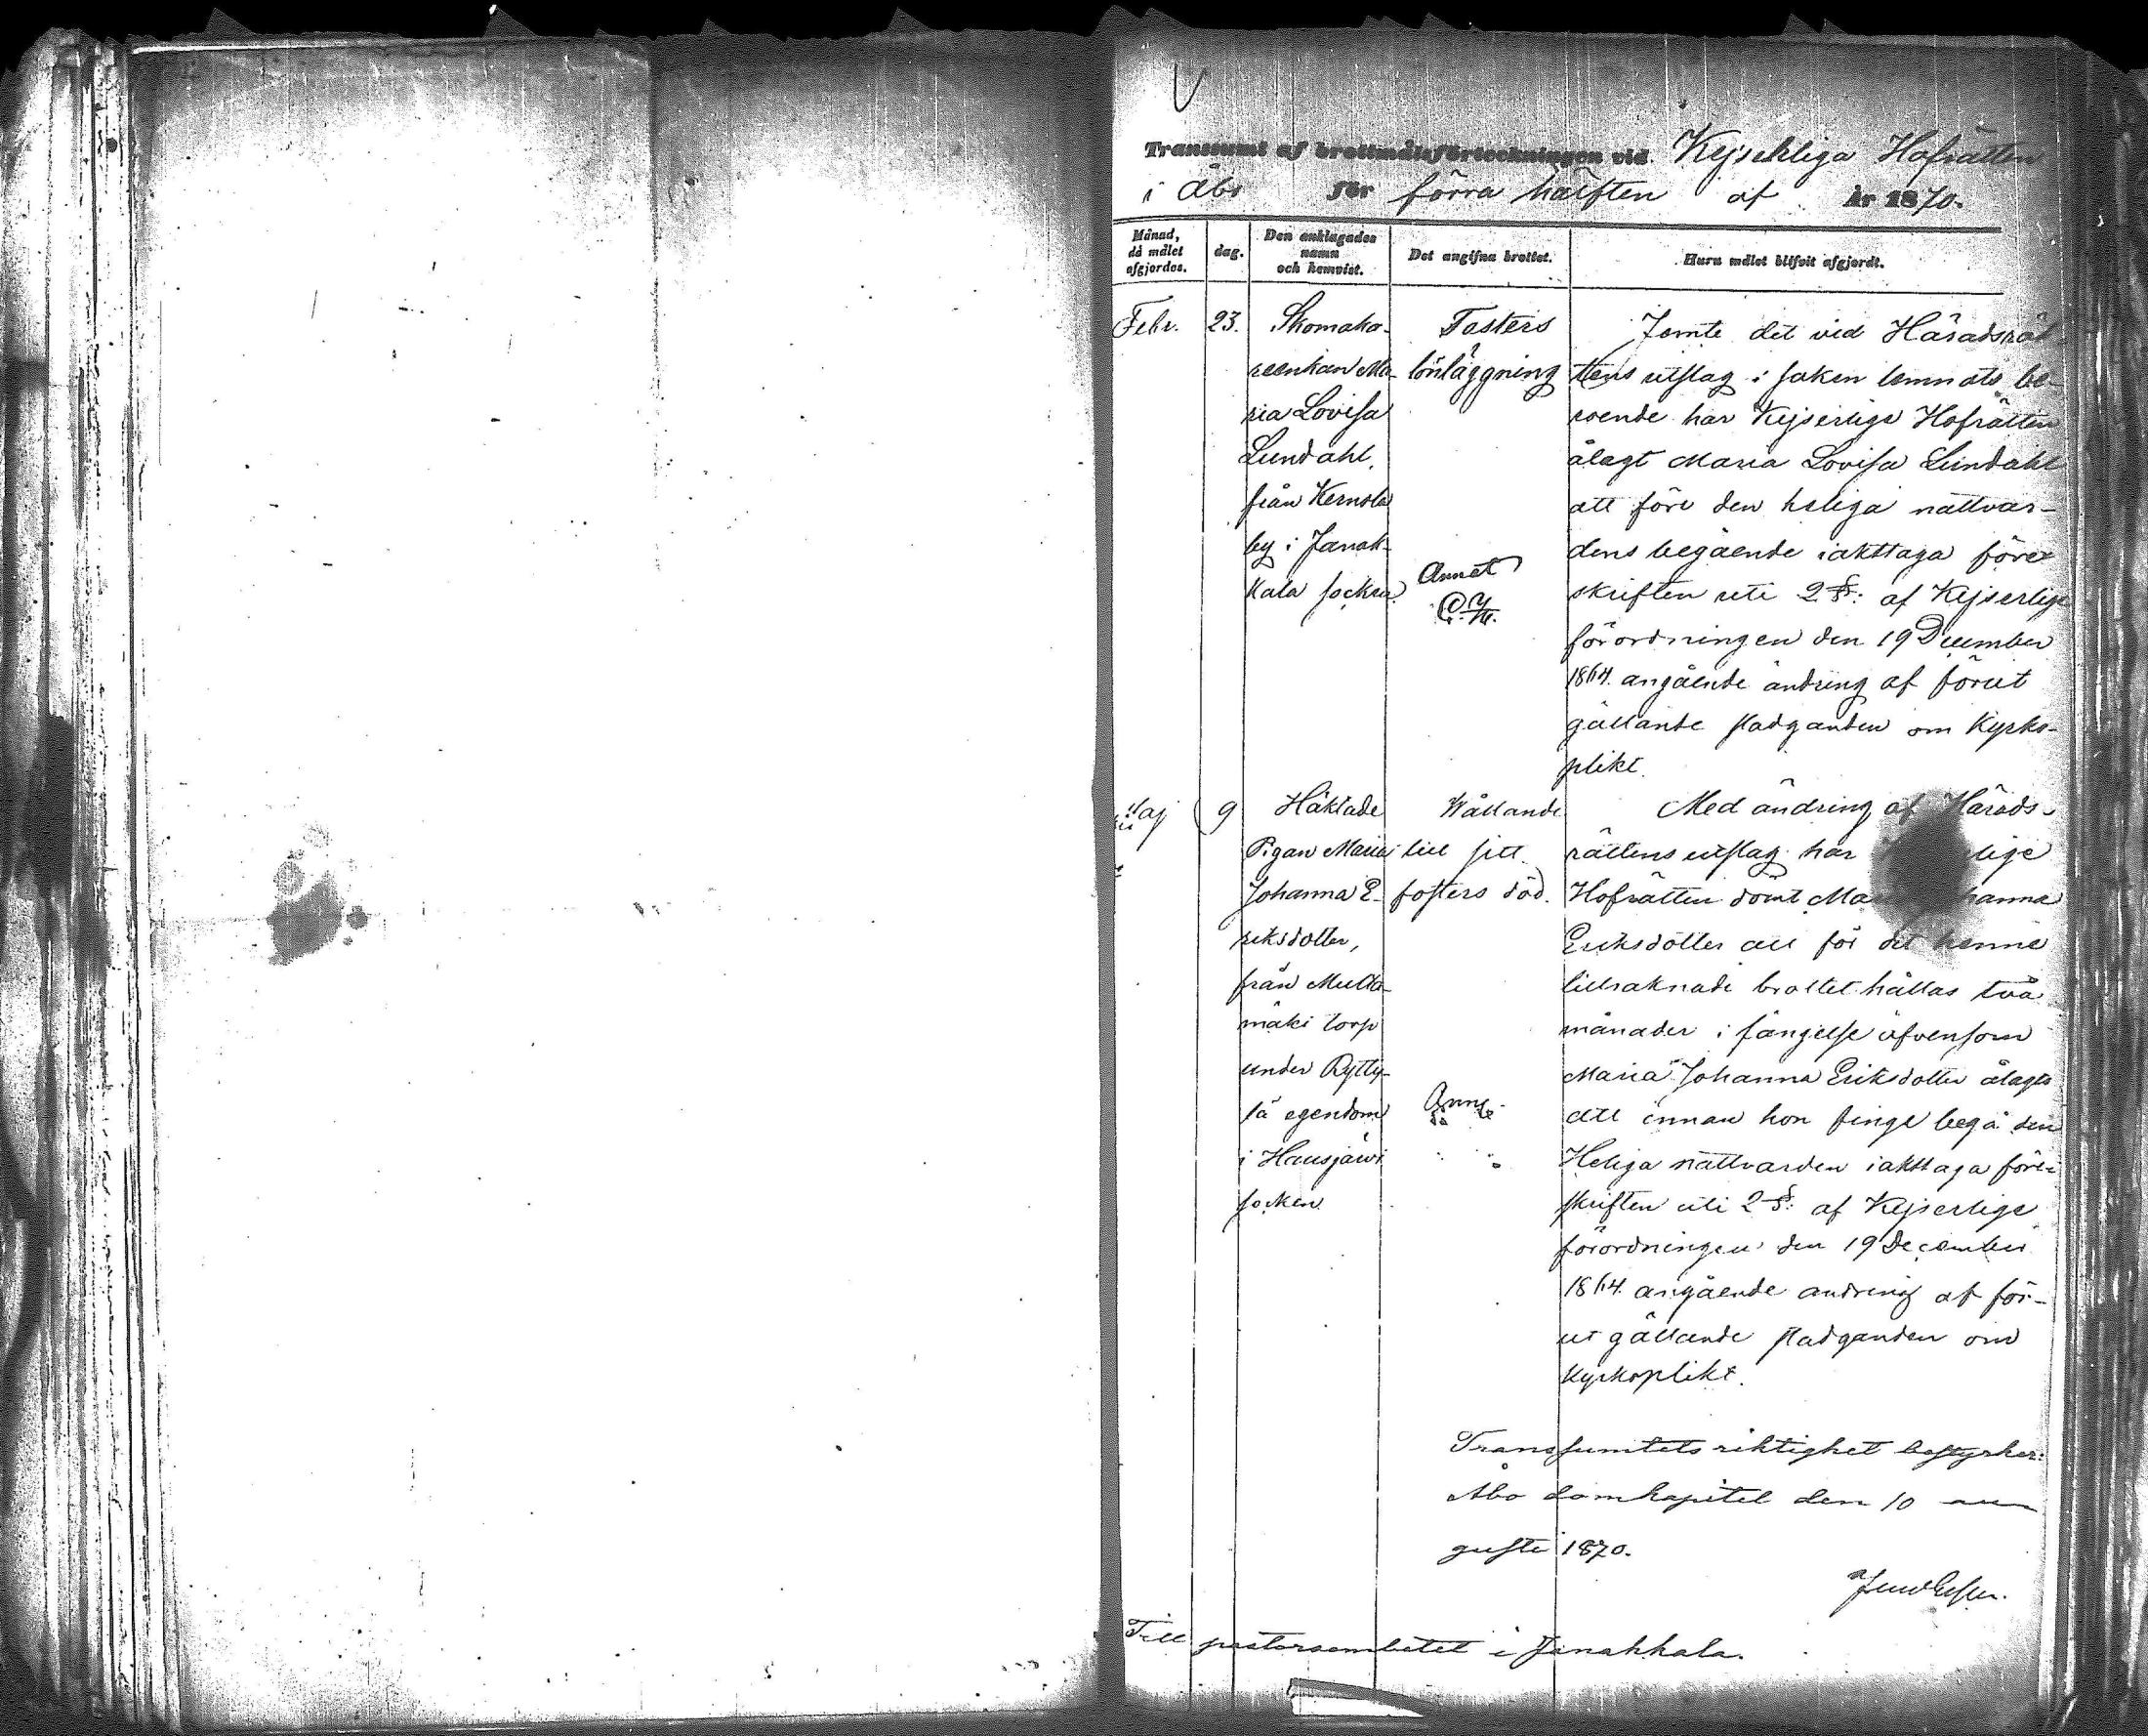 Transsumt af brottmålsförteckningen vid Kejserliga Hofrätten
i Åbo för förra hälften af år 1870.
Månad, då målet afgjordes.
dag.
Den anklagades namn och hemvist.
Det angifna brottet.
Huru målet blifvit afgjordt.
Febr. 23.
Skomaka-
reenkan Ma-
ria Lovisa
Lundahl,
från Kernola
by i Janak-
kala socken
Fosters
lönläggning
Annot
Jemte det vid Häradsrät-
tens utslag i saken lemnats be-
roende har Kejserliga Hofrätten
ålagt Maria Lovisa Lundahl
att före den heliga nattvar-
dens begående iakttaga före-
skriften uti 2 §: af Kejserliga
förordningen den 19 December
1864 angående ändring af förut
gällande stadganden om kyrko-
plikt.
Maj 9
Häktade
Pigan Maria
Johanna E-
riksdotter,
från Multa-
mäki torp
under Rytty-
lä egendom
i Hausjärvi
socken
Vållande
till sitt
fosters död.
Med ändring af Härads-
rättens utslag har lige
Hofrätten dömt Ma hanna
Eriksdotter att för det henne
tillräknade brottet hållas två
månader i fängelse äfvensom
Maria Johanna Eriksdotter ålagts
att innan hon finge begå den
Heliga nattvarden iakttaga före-
skriften uti 2 §: af Kejserlige
förordningen den 19 December
1864 angående ändring af för-
ut gällande stadganden om
kyrkoplikt.
Transsumtets riktighet bestyrker:
Åbo domkapitel den 10 au
gusti 1870.
Till pastorsembetet i Janakkala.